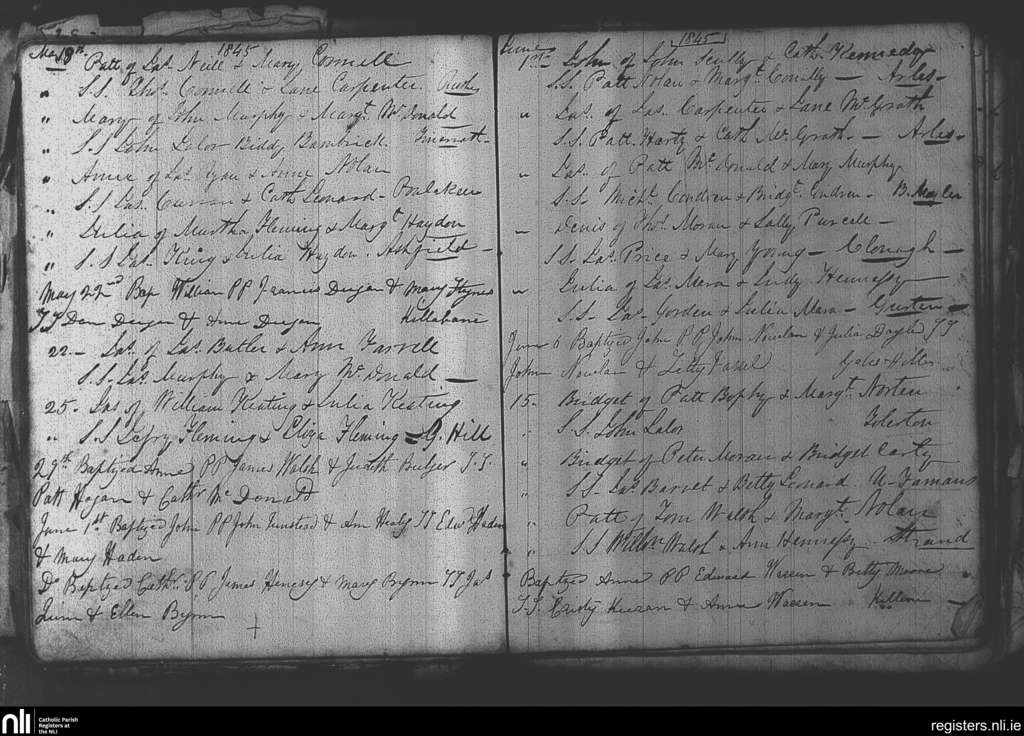 May 18th. 1845
Patt of Jas. Neill & Mary Connell
" S.S. Thos. Connell & Jane Carpenter.
" Mary of John Murphy & Margt. McDonald
" S.S John Lalor Biddy Bambrick.
" Anne of Jas. & Anne Nolan
" S.S Jas. Curran & Cath Leonard -
" Julia of Murtha Fleming & Margt Haydon
" S.S Jas. King & Julia Haydon. Ashfield -
May 22nd Bap William PP Francis Deegan & Mary Hynes
SS Dan Deegan & Anne Deegan Killabane
22 - Jas. of Jas. Butler & Ann Farrell
S.S. Jas. Murphy & Mary McDonald -
25. Jas of William Keating & Julia Keating
" S.S Jefry Fleming & Eliza Fleming - G. Hill
29th Baptized Anne PP James Walsh & Judith Bulger S.S.
Patt Hogan & Cathr McDonald
June 1st Baptized John PP John & Ann Healy SS Edwd Haden
& Mary Haden
Do Baptized Cath. PP James Henesy & Mary Byrne SS Jas
Quinn & Ellen Byrne
June 1845
1st. John of John Scully & Cath. Kennedy
S.S. Patt Nolan & Margt. Conolly - Arles -
" Jas. of Jas. Carpenter & Jane McGrath
S.S. Patt. Hartz & Cath McGrath. - Arles -
" Jas. of Patt McDonald & Mary Murphy
S.S. Michl. Condren & Bridgt.
" Denis of Thos. Moran & Sally Purcell -
S.S. Jas. Price & Mary Young - Clonagh -
" Julia of Jas. Mara & Judy Hennessy
S.S. Jas. Gorden & Julia Mara -
June 8 Baptized John PP John Nowlan & Julia Doyle SS
John Nowlan & Letty
15. Bridget of Patt Bophy & Margt. Norten
S.S. John Lalor Tolerton
" Bridget of Peter Moran & Bridget Carty
" S.S - Jas. Barret & Betty Leonard.
" Patt of Tom Walsh & Margt. Nolan
" S.S Willm Walsh & Ann Hennessy. Strand
Baptized Anne PP Edward & Betty Moore
S.S. & Anne
nli Catholic Parish
Registers at
the NLI
registers.nli.ie